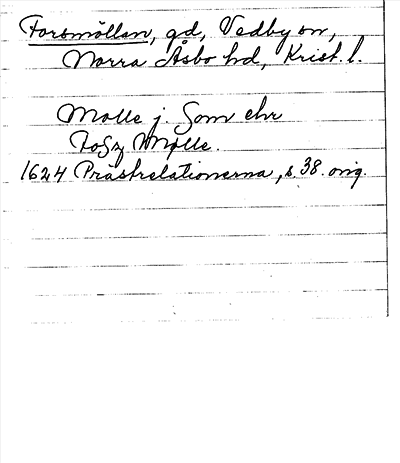 Forsmöllan, gd, Vedby sn,
Norra Åsbo hd, Krist. l.
Mølle j. Som ehr
Fosz Mølle.
1624 Prästrelationerna, s. 38. orig.